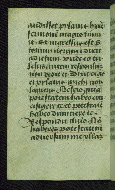 audisset pilatus hunc
sermonem magis timu
it Et ingressus est
iterum et dixit
ad iesum unde es tu
Iesus autem responsum
non dedit ei Dicit ergo
ei pilatus michi non
loqueris Nescis quia
potestatem habeo cru
cifigere te et potestatem
habeo dimittere te
Respondit iesus Non
haberes potestatem
adversum me ullam